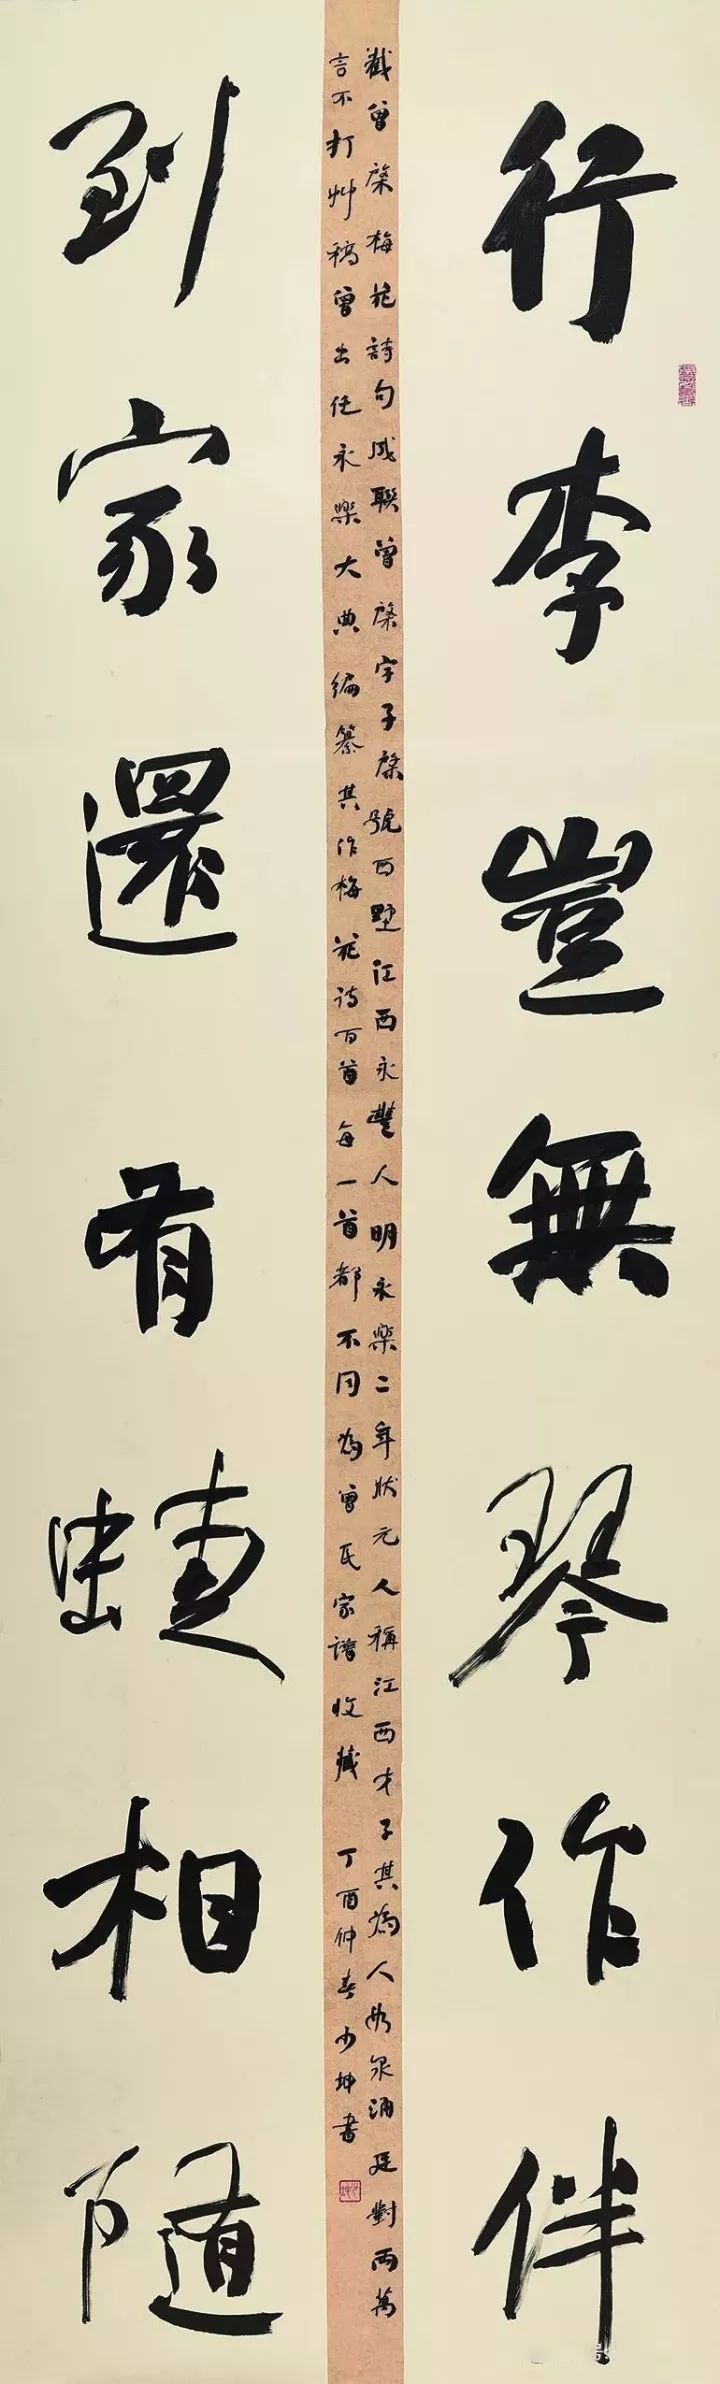 行李豈無琴作伴
到家還有蜨相隨
截曾棨梅花詩句成聯曾棨字子棨號西墅江西永豐人明永樂二年狀元人稱江西才子其為人如泉涌廷對兩萬
言不打艸稿曾出任永樂大典編纂其作梅花詩百首每一首都不同為曾氏家譜收藏 丁酉仲春少坤書